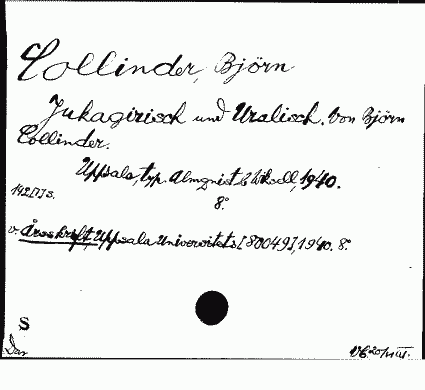 Collinder, Björn
Jukagirisch und Uralisch. Von Björn
Collinder.
Uppsala, typ. Almqvist & Wiksell, 1940.
142[1] s. 8°
v. Årsskrift, Uppsala Universitets [80049], 1940. 8°
S